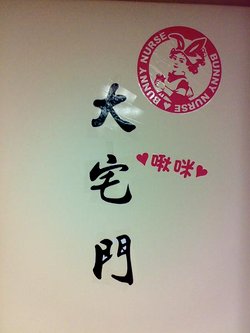 BUNNY NURSE
BUNNY NURSE
BUNNY NURSE
大宅門
啾咪